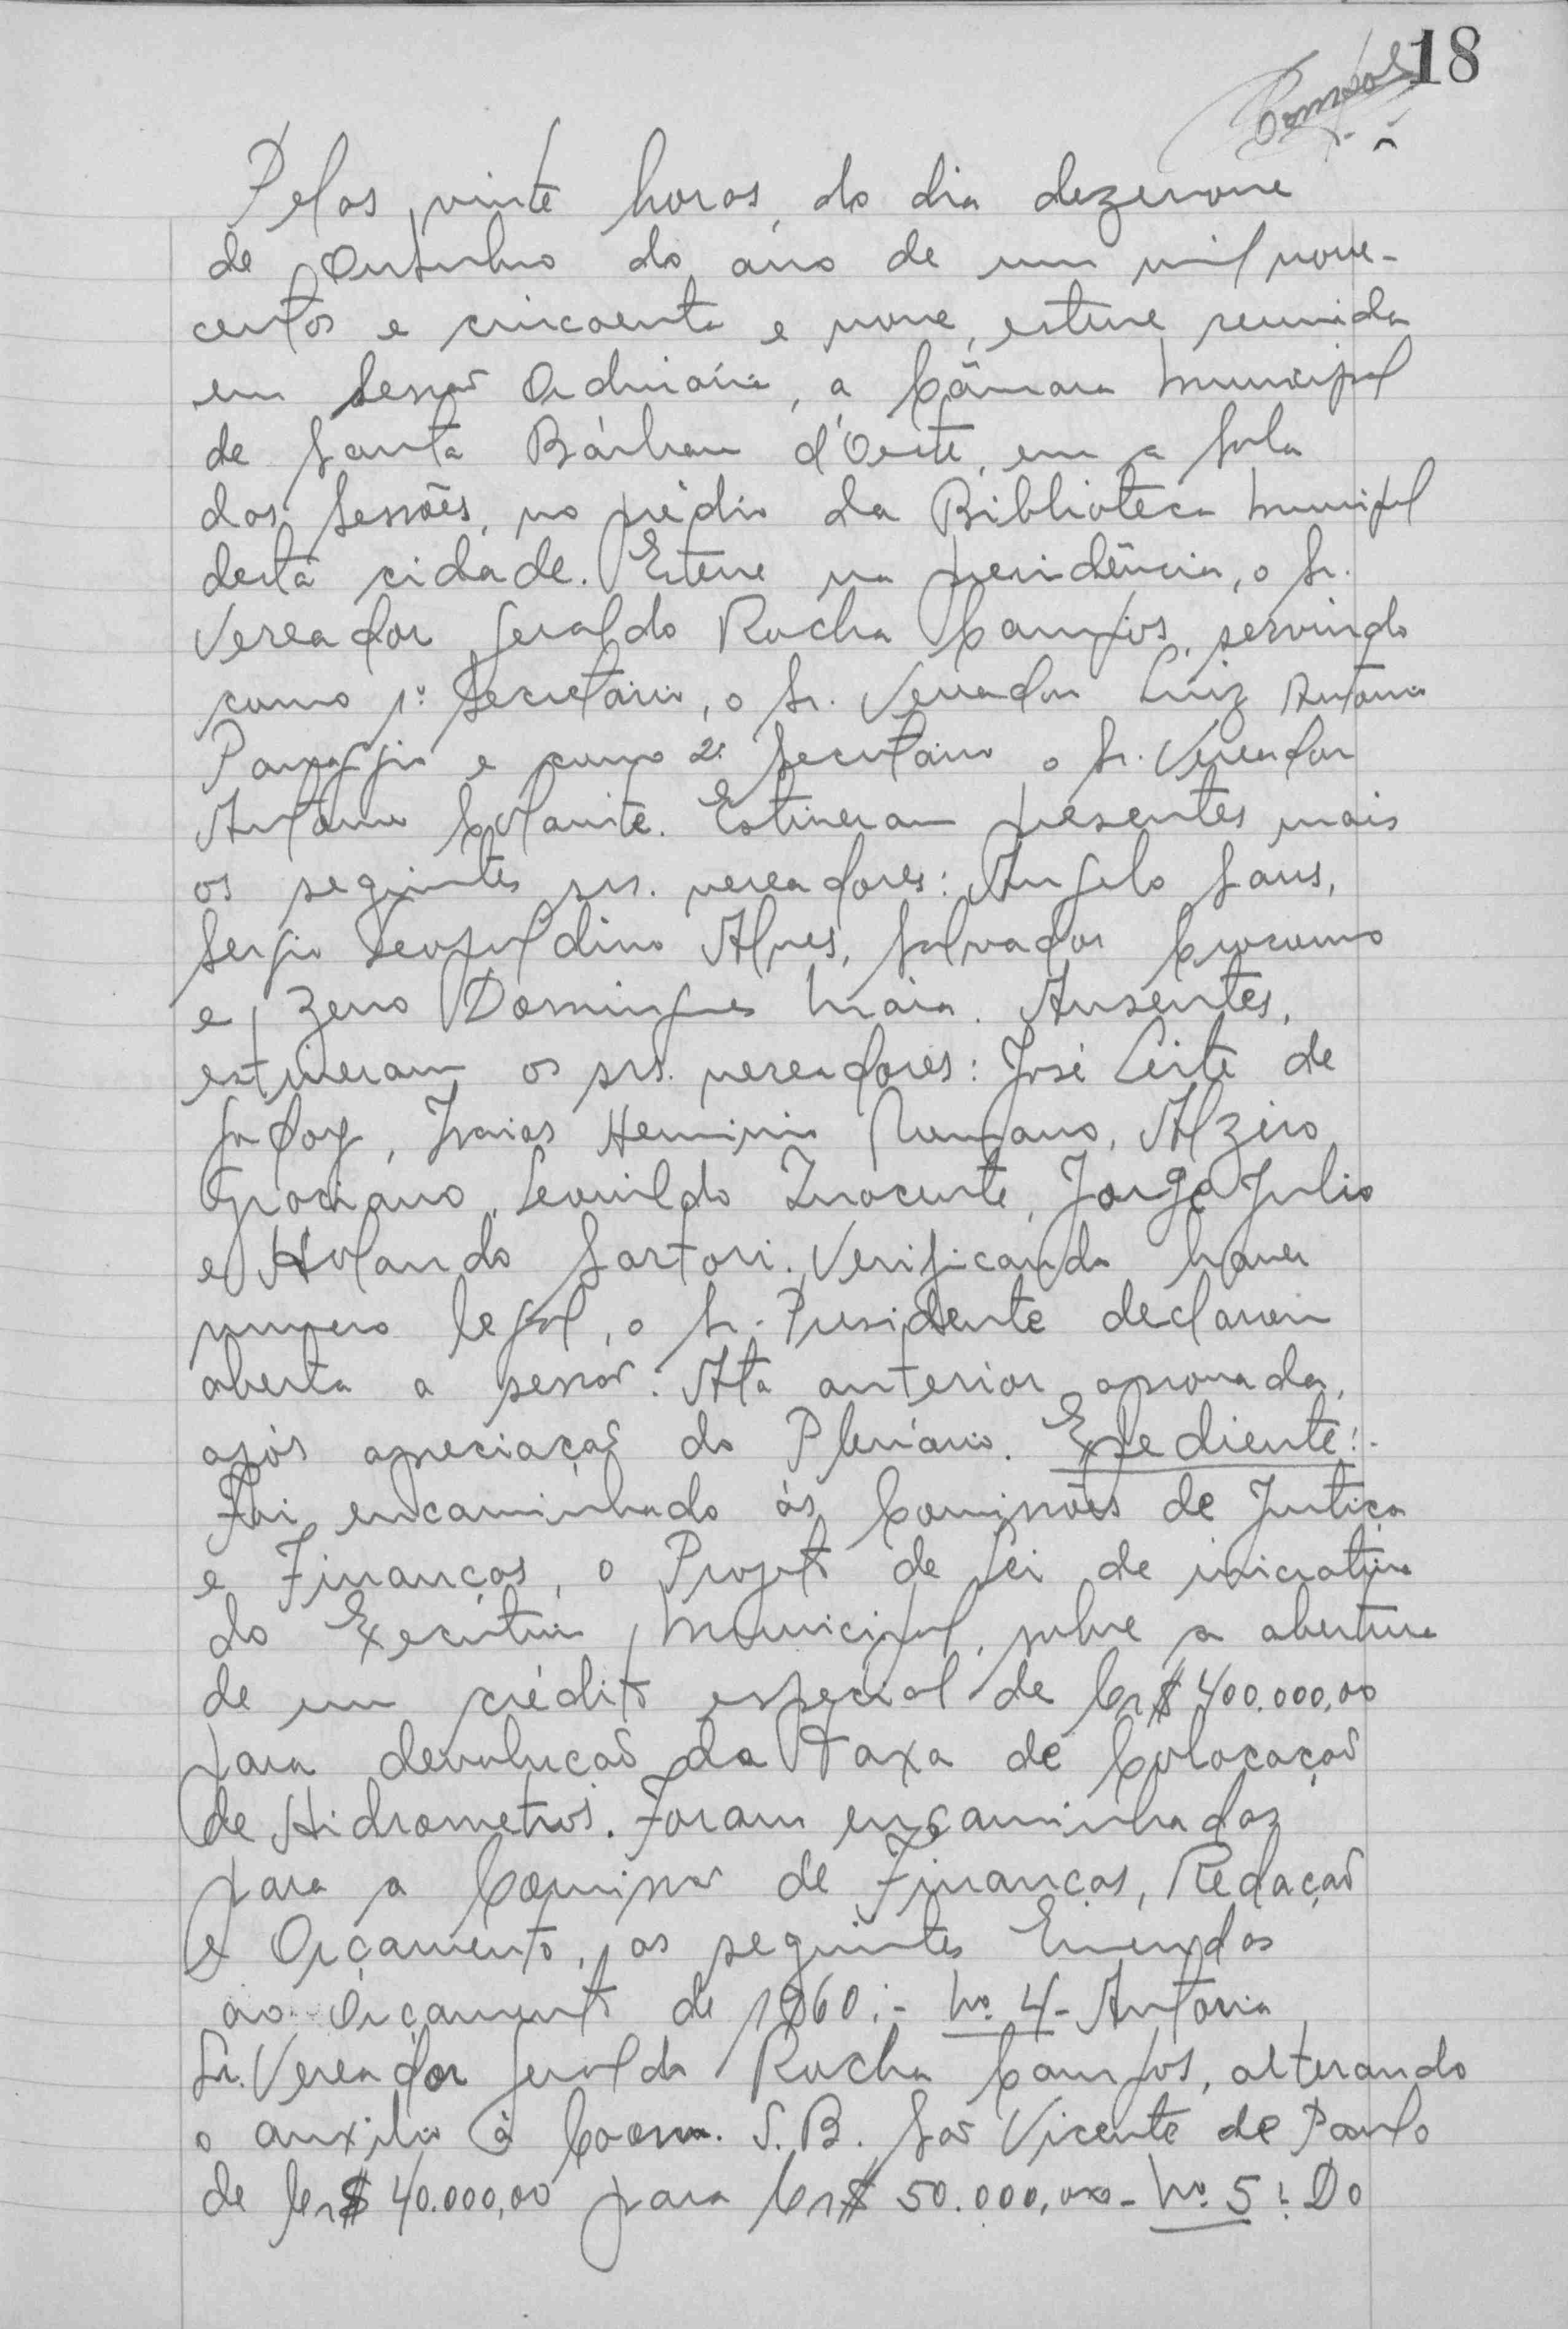 18
Campos
Pelas vinte horas, do dia dezenove
de Outubro do ano de um mil nove-
centos e cincoenta e nove, esteve reunida
em Sessão Ordinária, a Câmara Municipal
de Santa Bárbara d'Oeste, em a Sala
das Sessões, no prédio da Biblioteca Municipal
desta cidade. Esteve na presidência, o Sr.
Vereador Geraldo Rocha Campos, servindo
como 1º Secretário, o Sr. Vereador Luiz Antonio
e como 2º Secretário o Sr. Vereador
Antonio. Estiveram presentes mais
os seguintes srs. vereadores: Angelo Sans,
Sergio Leopoldino Alves, Salvador
e Zeno Domingues Maia. Ausentes,
estiveram os srs. vereadores: José Leite de
Godoy, Isaias Herminio Romano, Alziro
Graciano, Leonildo Inocente, Jorge Julio
e Sartori. Verificando haver
numero legal, o Sr. Presidente declarou
aberta a sessão. Ata anterior aprovada,
após apreciação do Plenário. Expediente:-
Foi encaminhado às Comissões de Justiça
e Finanças, o Projeto de Lei de iniciativa
do Executivo Municipal, sobre a abertura
de um crédito especial de Cr$ 400.000,00
para devolução da Taxa de Colocação
de Hidrometros. Foram encaminhadas
para a Comissão de Finanças, Redação
e Orçamento, as seguintes Emendas
ao Orçamento de 1960:- No. 4- Autoria
Sr. Vereador Geraldo Rocha Campos, alterando
o auxilio à S.B. São Vicente de Paulo
de Cr$ 40.000,00 para Cr$ 50.000,00- No. 5: Do